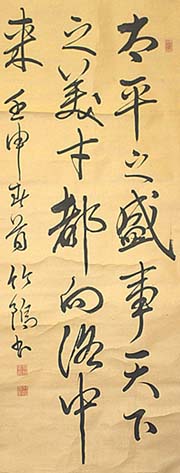 太平之盛事天下
之美才都向洛中
来 壬申春首 竹 書